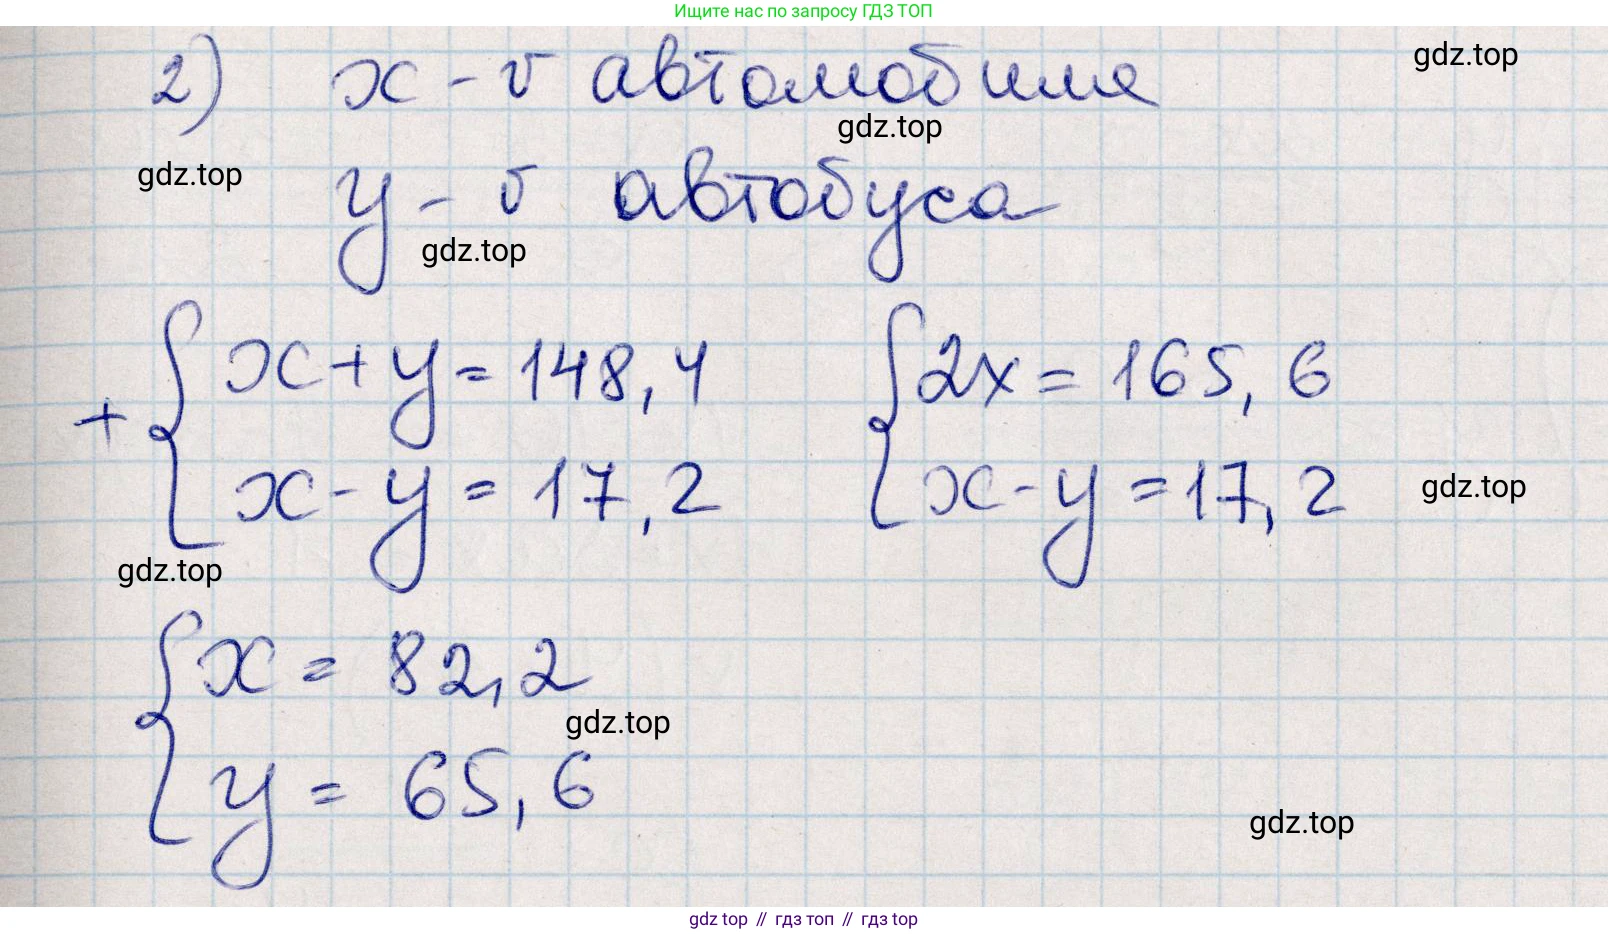 Ищите нас по запросу ГДЗ ТОП
2) x - v автомобиля
gdz.top
gdz.top
gdz.top
y - v автобуса
gdz.top
+ { x + y = 148,4
x - y = 17,2
{ 2x = 165,6
x - y = 17,2
gdz.top
gdz.top
{ x = 82,2
gdz.top
y = 65,6
gdz.top
gdz top // гдз топ // gdz top